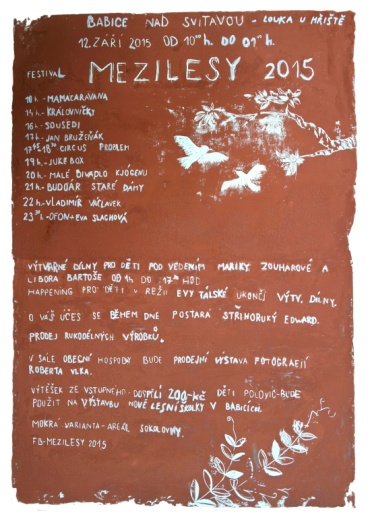 BABICE NAD SVITAVOU - LOUKA U HŘIŠTĚ
12. ZÁŘÍ 2015 OD 10⁰⁰ h. DO 01⁰⁰ h.
FESTIVAL MEZILESY 2015
10h.- MAMACARAVANA
14h.- KRÁLOVNIČKY
16h.- SOUSEDI
17h.- JAN BRUŽEŇÁK
17³⁰ 18³⁰ CIRCUS PROBLEM
19h.- JUKEBOX
20h.- MALÉ DIVADLO KJÓGENU
21h.- BUDOÁR STARÉ DÁMY
22h.- VLADIMÍR VÁCLAVEK
23³⁰.- OFON + EVA SLACHOVÁ
VÝTVARNÉ DÍLNY PRO DĚTI POD VEDENÍM MARIKY ZOUHAROVÉ A
LIBORA BARTOŠE OD 14 DO 17³⁰ HOD
HAPPENING PRO DĚTI V REŽII EVY TÁLSKÉ UKONČÍ VÝTV. DÍLNY.
O VÁŠ ÚČES SE BĚHEM DNE POSTARÁ STŘIHORUKÝ EDWARD.
PRODEJ RUKODĚLNÝCH VÝROBKŮ.
V SÁLE OBECNÍ HOSPODY BUDE PRODEJNÍ VÝSTAVA FOTOGRAFIÍ
ROBERTA VLKA.
VÝTĚŽEK ZE VSTUPNÉHO - DOSPĚLÍ 200-KČ DĚTI POLOVIC - BUDE
POUŽIT NA VÝSTAVBU NOVÉ LESNÍ ŠKOLKY V BABICÍCH.
MOKRÁ VARIANTA - AREÁL SOKOLOVNY.
FB - MEZILESY 2015